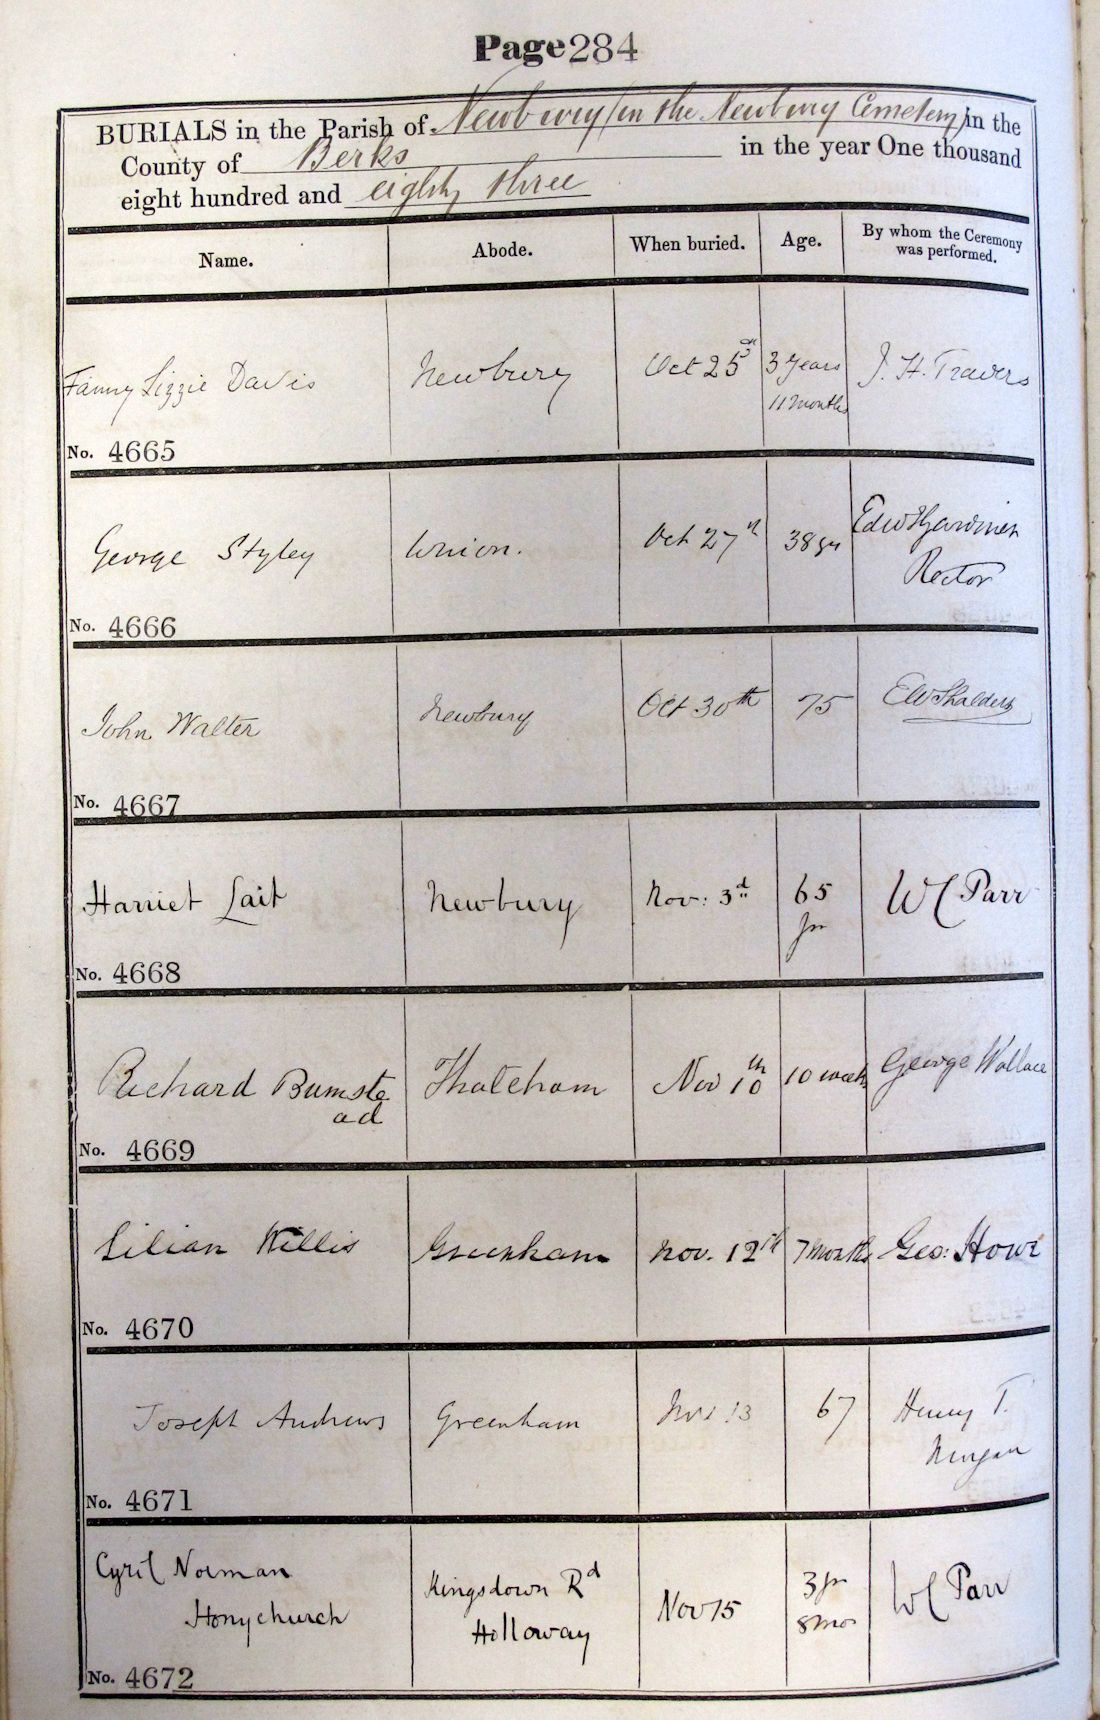 Page 284
BURIALS in the Parish of Newbury (in the Newbury Cemetery) in the
County of Berks in the year One thousand
eight hundred and eighty three
Name. Abode. When buried. Age. By whom the Ceremony
was performed.
Fanny Lizzie Davis Newbury Oct 25 3 Years J. H. Travers
11 months
No. 4665
George Styley Union. Oct 27th 38 yrs Edw Gardiner
Rector
No. 4666
John Walter Newbury Oct 30th 75 EW Shalders
No. 4667
Harriet Lait Newbury Nov: 3d 65 WC Parr
yrs
No. 4668
Richard Bumste Thatcham Nov 10th 10 weeks George Wallace
ad
No. 4669
Lilian Willis Greenham Nov. 12th 7 months Geo: Howe
No. 4670
Joseph Andrews Greenham Nov 13 67 Henry T.
No. 4671
Cyril Norman Kingsdown Rd Nov 15 3 yrs WC Parr
Honychurch Holloway 8 mos
No. 4672